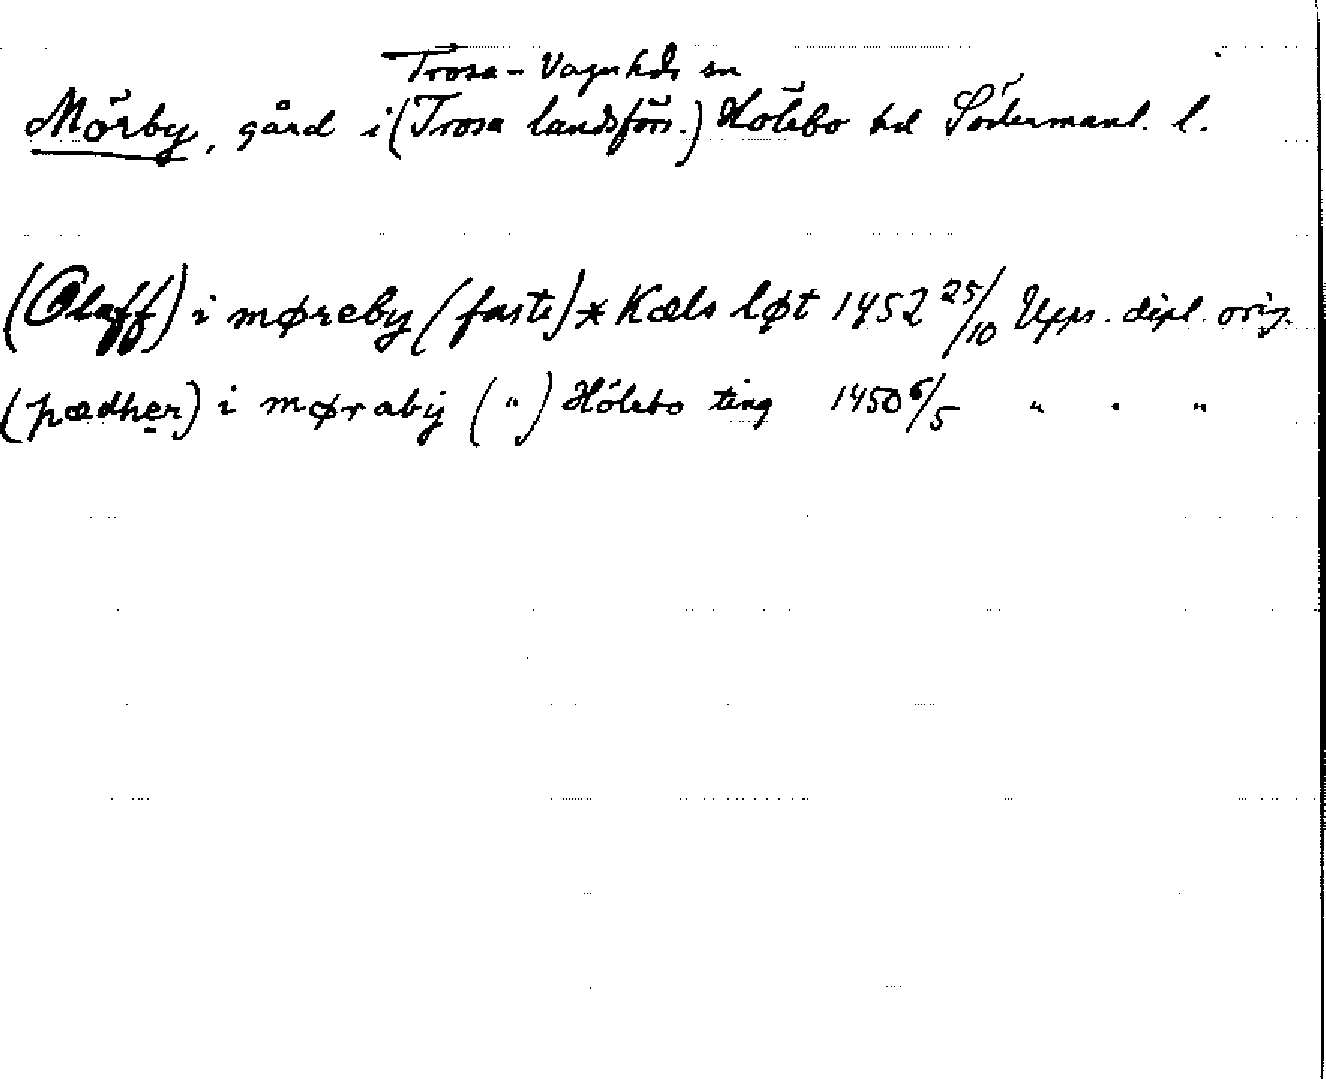 Trosa-Vagnhds sn
Mörby, gård i (Trosa landsförs.) Hölebo hd Södermanl. l.
(Olaff) i møreby (faste) * Kæls løt 1452 25/10 Upps. dipl. orig.
(pædher) i mørabÿ (") Hölebo ting 1450 6/5 " . "